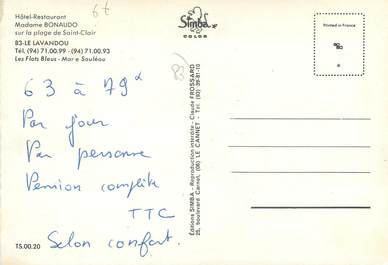 6t
Hôtel-Restaurant
Madame BONAUDO
sur la plage de Saint-Clair
83-LE LAVANDOU
Tél. (94) 71.00.99 - (94) 71.00.93
Les Flots Bleus - Mar e Souléou
63 à 79
Par jour
Par personne
Pension complète
TTC
Selon confort.
TS.00.20
Simba
COLOR
(83)
Éditions SIMBA - Reproduction interdite - Claude FROSSARD
25, boulevard Carnot, (06) LE CANNET - Tél. (93) 39-81-10
Printed in France